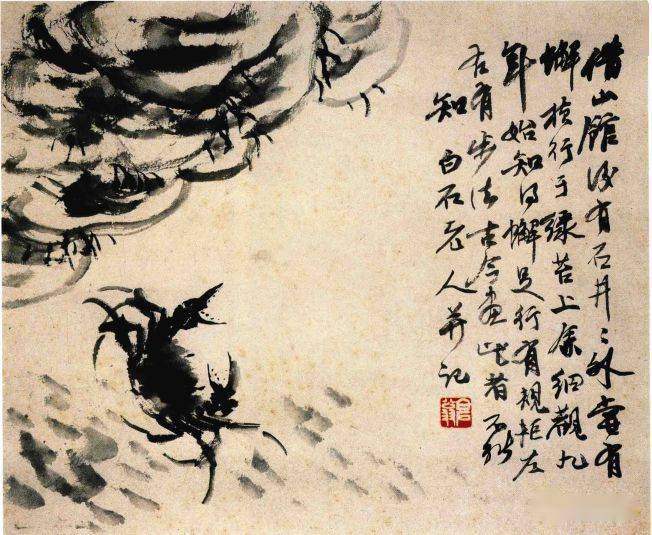 借山館後有石井〻外嘗有
蠏橫行于綠苔上余細觀九
年始知得蠏足行有規矩左
右有步法古今畫此者不能
知 白石老人并記